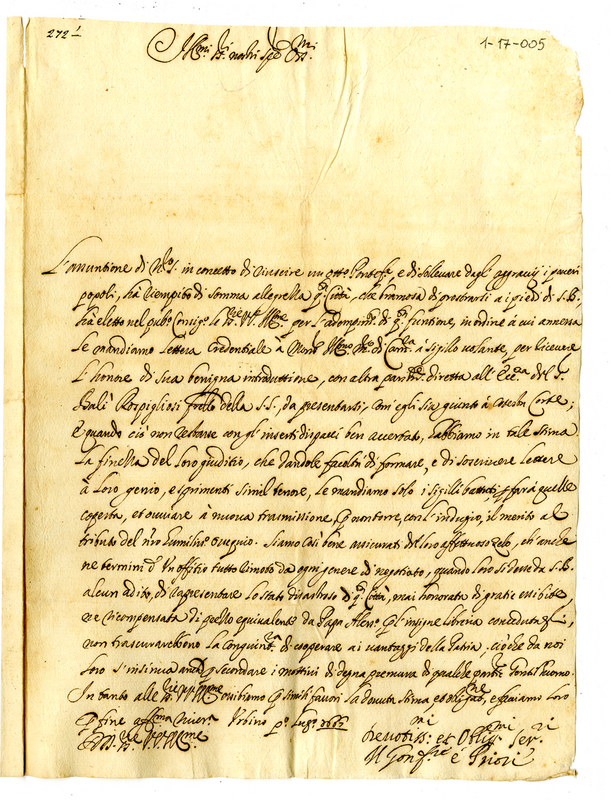 272
1-17-005
Ill.mi SS.ri nostri
L'assuntione di N.ro S.re in concetto di riuscire un ott.o Pontef.e, e di sollevare dagl'aggravij i poveri
popoli, hà riempito di somma allegrezza q.ta Città, che bramosa di prostrarsi a i piedi di S. B.
hà eletto nel pub.co Consig.o le SS.rie VV. Ill.me per l'adempim.to di q.ta funtione, in ordine à cui annessa
le mandiamo lettera Credentiale à Mons.r à sigillo volante, per ricevere
l'honore di sua benigna introduttione, con altra partim.te diretta all'Ecc.za del S.r
Balì Rospigliosi frat.llo della S.S., da presentarsi, com'egli sia giunto à cotesta Corte;
e quando ciò non restasse con gl'inserti dispacci ben accertato, habbiamo in tale stima
la finezza del loro giuditio, che dandole facoltà di formare, e di soscrivere lettere
à loro genio, e sprimenti simil tenore, le mandiamo solo i sigilli battuti, p far à quelle
coperta, et ovviare à nuova trasmissione, p non torre, con l'indugio, il merito al
tributo del n.ro humiliss.o ossequio. Siamo così bene assicurati del loro affettuoso zelo, ch'anche
ne termini d'un offitio tutto rimoto da ogni genere di negotiato, quando loro si desse da S. B.
alcun adito, di rappresentare lo stato disastroso di q.ta Città, mai honorato di gratie
ne ricompensata di quello equivalente da Papa Aless.o p l'insigne libreria concedutagli,
non trascurarebbono la congiunt.ra di cooperare ai vantaggi della Patria; ciò che da noi
loro s'insinua p secondare i mottivi di degna premura di qualche
In tanto alle SS.rie VV. Ill.me p simili favori la dovuta stima et, e preghiamo loro
p fine Urbino p.o lug.o 1667
D. SS.rie VV. Ill.me
Devotiss.mi et Oblig.mi Ser.ri
Il Gonf.re e Priori